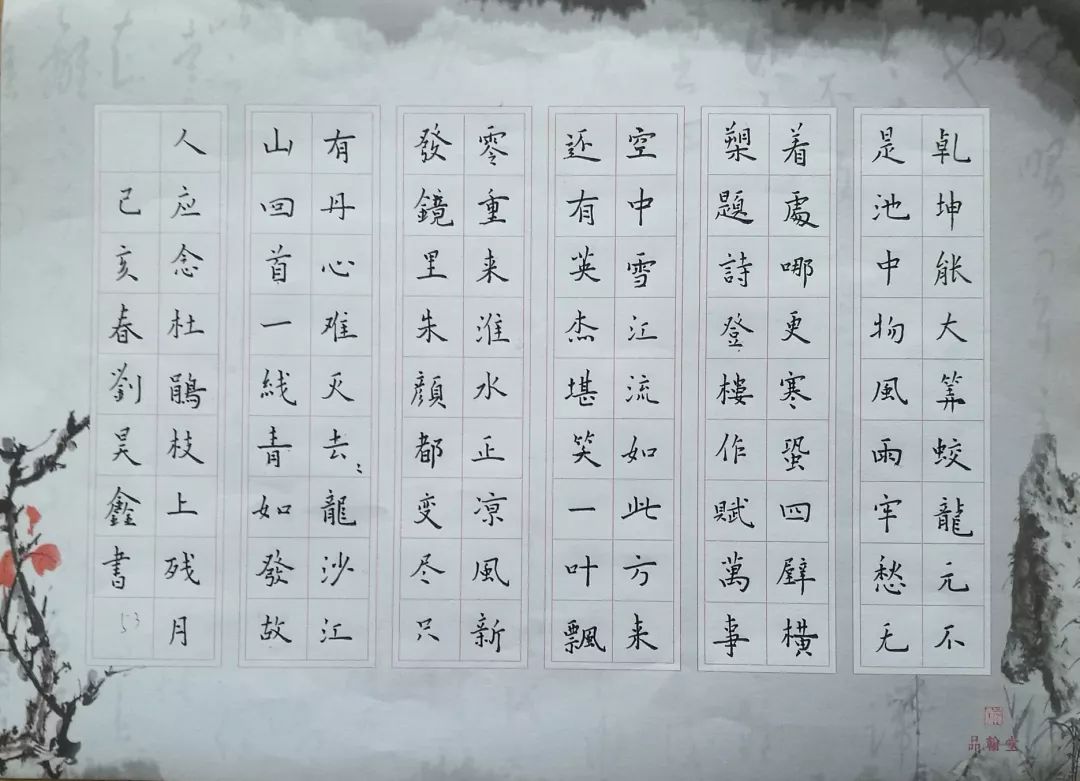 乹坤能大筭蛟龍元不
是池中物風雨牢愁无
着處哪更寒蛩四壁橫
槊題詩登樓作賦萬事
空中雪江流如此方来
还有英杰堪笑一叶飄
零重来淮水正凉風新
發鏡里朱顔都变尽只
有丹心难灭去〻龍沙江
山回首一綫青如發故
人应念杜鹃枝上残月
己亥春劉昊鑫書
53
品翰堂